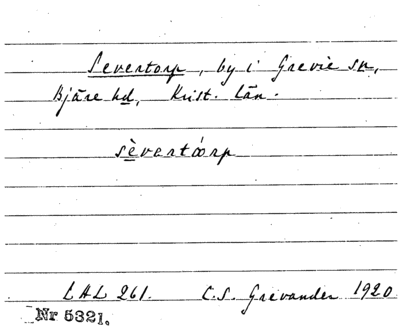 Severtorp, by i Grevie sn,
Bjäre hd, Krist. län.
sèvartóorp
LAL 261. C.S. Grevander 1920
Nr 5321.